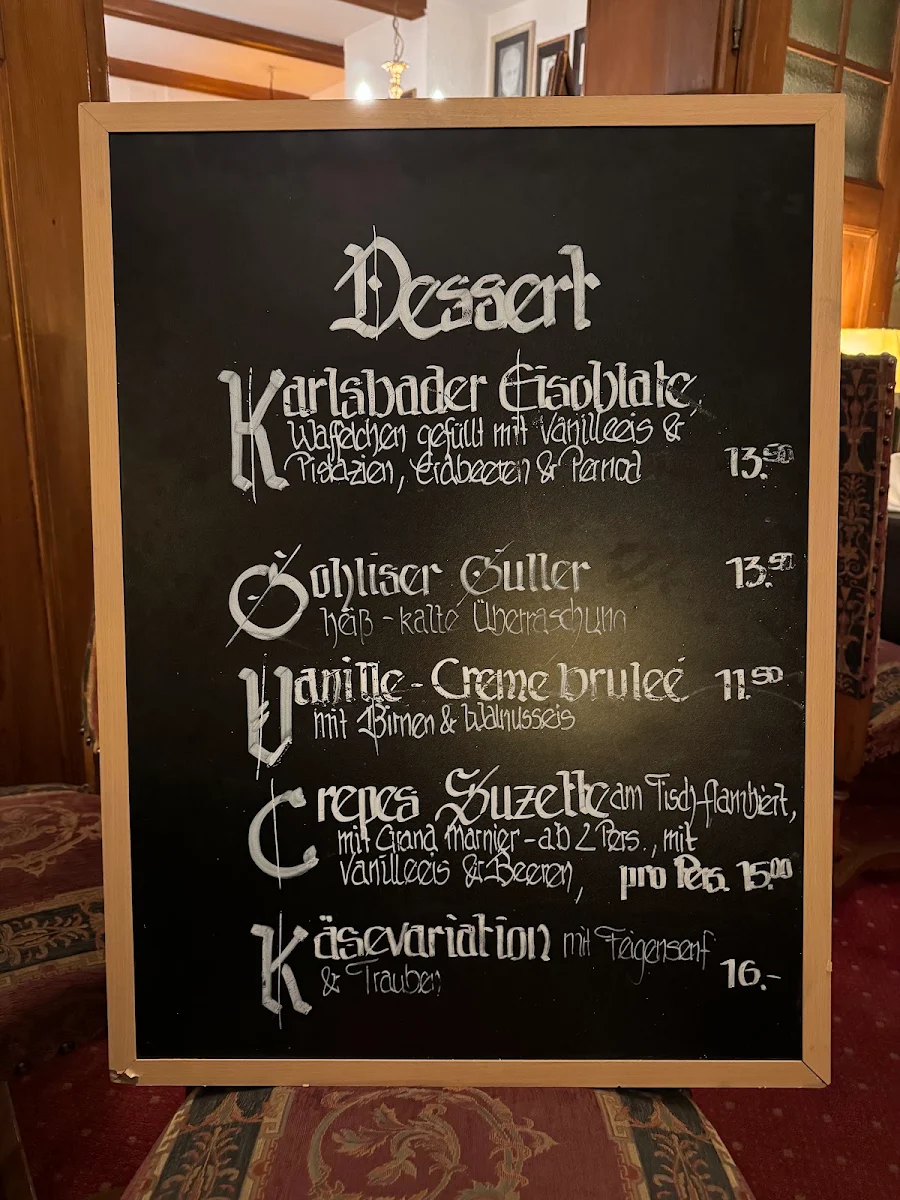 Dessert
Karlsbader Eisoblate,
Waffelchen gefüllt mit Vanilleeis &
Pistazien, Erdbeeren & Pernod 13.50
Gohliser Guller 13.50
heiß - kalte Überraschung
Vanille - Creme bruleé 11.90
mit Birnen & Walnusseis
Crepes Suzette am Tisch flambiert,
mit Grand Marnier - ab 2 Pers., mit
Vanilleeis & Beeren, pro Pers. 15.00
Käsevariation mit Feigensenf
& Trauben 16.-